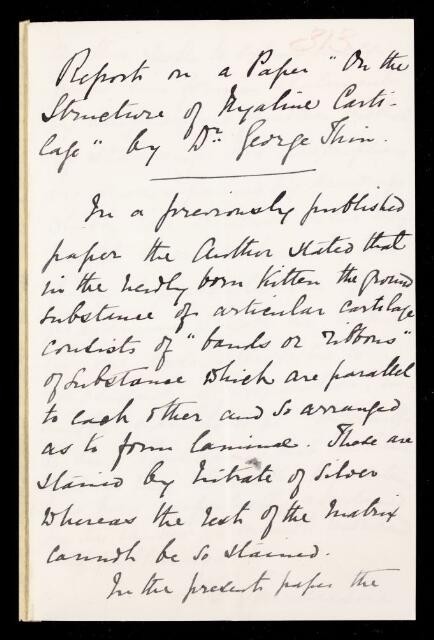 313
Report on a Paper "On the
Structure of Hyaline Carti-
lage" by Dr. George Thin.
In a previously published
paper the Author stated that
in the newly born kitten the ground
substance of articular cartilage
consists of "bands or ribbons"
of substance which are parallel
to each other and so arranged
as to form laminæ. These are
stained by Nitrate of Silver
whereas the rest of the matrix
cannot be so stained.
In the present paper the